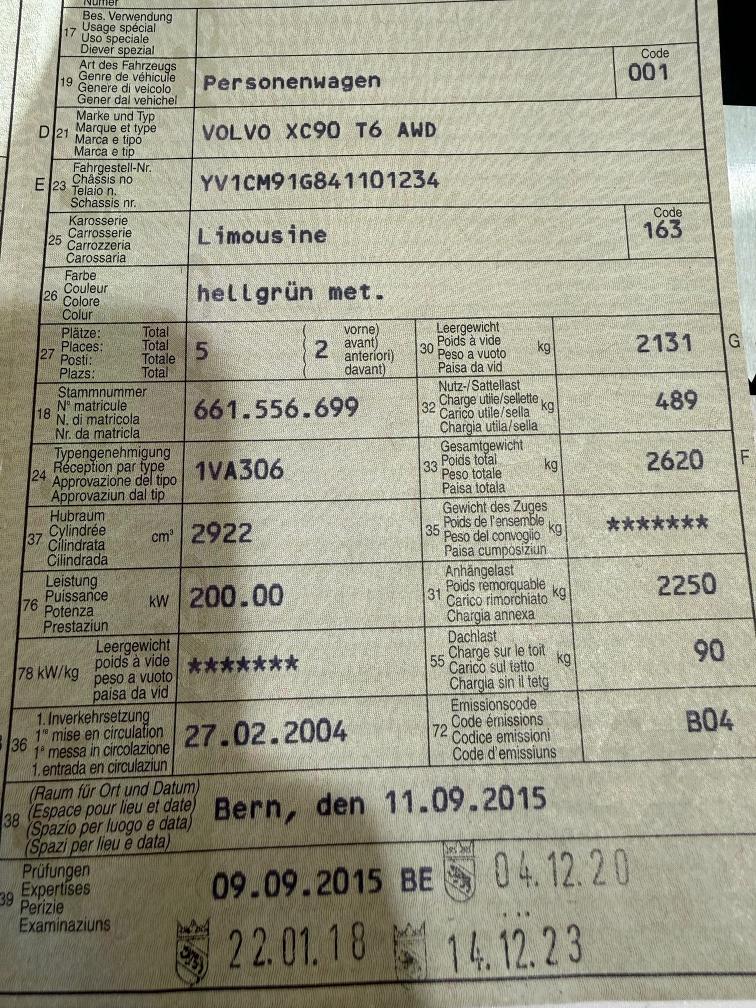 Numer
17
Bes. Verwendung
Usage spécial
Uso speciale
Diever spezial
19
Art des Fahrzeugs
Genre de véhicule
Genere di veicolo
Gener dal vehichel
Personenwagen
Code
001
D
21
Marke und Typ
Marque et type
Marca e tipo
Marca e tip
VOLVO XC90 T6 AWD
E
23
Fahrgestell-Nr.
Châssis no
Telaio n.
Schassis nr.
YV1CM91G841101234
25
Karosserie
Carrosserie
Carrozzeria
Carossaria
Limousine
Code
163
26
Farbe
Couleur
Colore
Colur
hellgrün met.
27
Plätze: Total
Places: Total
Posti: Totale
Plazs: Total
5
( 2
vorne)
avant)
anteriori)
davant)
30
Leergewicht
Poids à vide
Peso a vuoto
Paisa da vid
kg
2131
G
18
Stammnummer
N° matricule
N. di matricola
Nr. da matricla
661.556.699
32
Nutz-/Sattellast
Charge utile/sellette
Carico utile/sella
Chargia utila/sella
kg
489
24
Typengenehmigung
Réception par type
Approvazione del tipo
Approvaziun dal tip
1VA306
33
Gesamtgewicht
Poids total
Peso totale
Paisa totala
kg
2620
F
37
Hubraum
Cylindrée
Cilindrata
Cilindrada
cm³
2922
35
Gewicht des Zuges
Poids de l'ensemble
Peso del convoglio
Paisa cumposiziun
kg
*******
76
Leistung
Puissance
Potenza
Prestaziun
kW
200.00
31
Anhängelast
Poids remorquable
Carico rimorchiato
Chargia annexa
kg
2250
78 kW/kg
Leergewicht
poids à vide
peso a vuoto
paisa da vid
*******
55
Dachlast
Charge sur le toit
Carico sul tetto
Chargia sin il tetg
kg
90
36
1. Inverkehrsetzung
1re mise en circulation
1a messa in circolazione
1. entrada en circulaziun
27.02.2004
72
Emissionscode
Code émissions
Codice emissioni
Code d'emissiuns
B04
38
(Raum für Ort und Datum)
(Espace pour lieu et date)
(Spazio per luogo e data)
(Spazi per lieu e data)
Bern, den 11.09.2015
39
Prüfungen
Expertises
Perizie
Examinaziuns
09.09.2015 BE
04.12.20
22.01.18
14.12.23